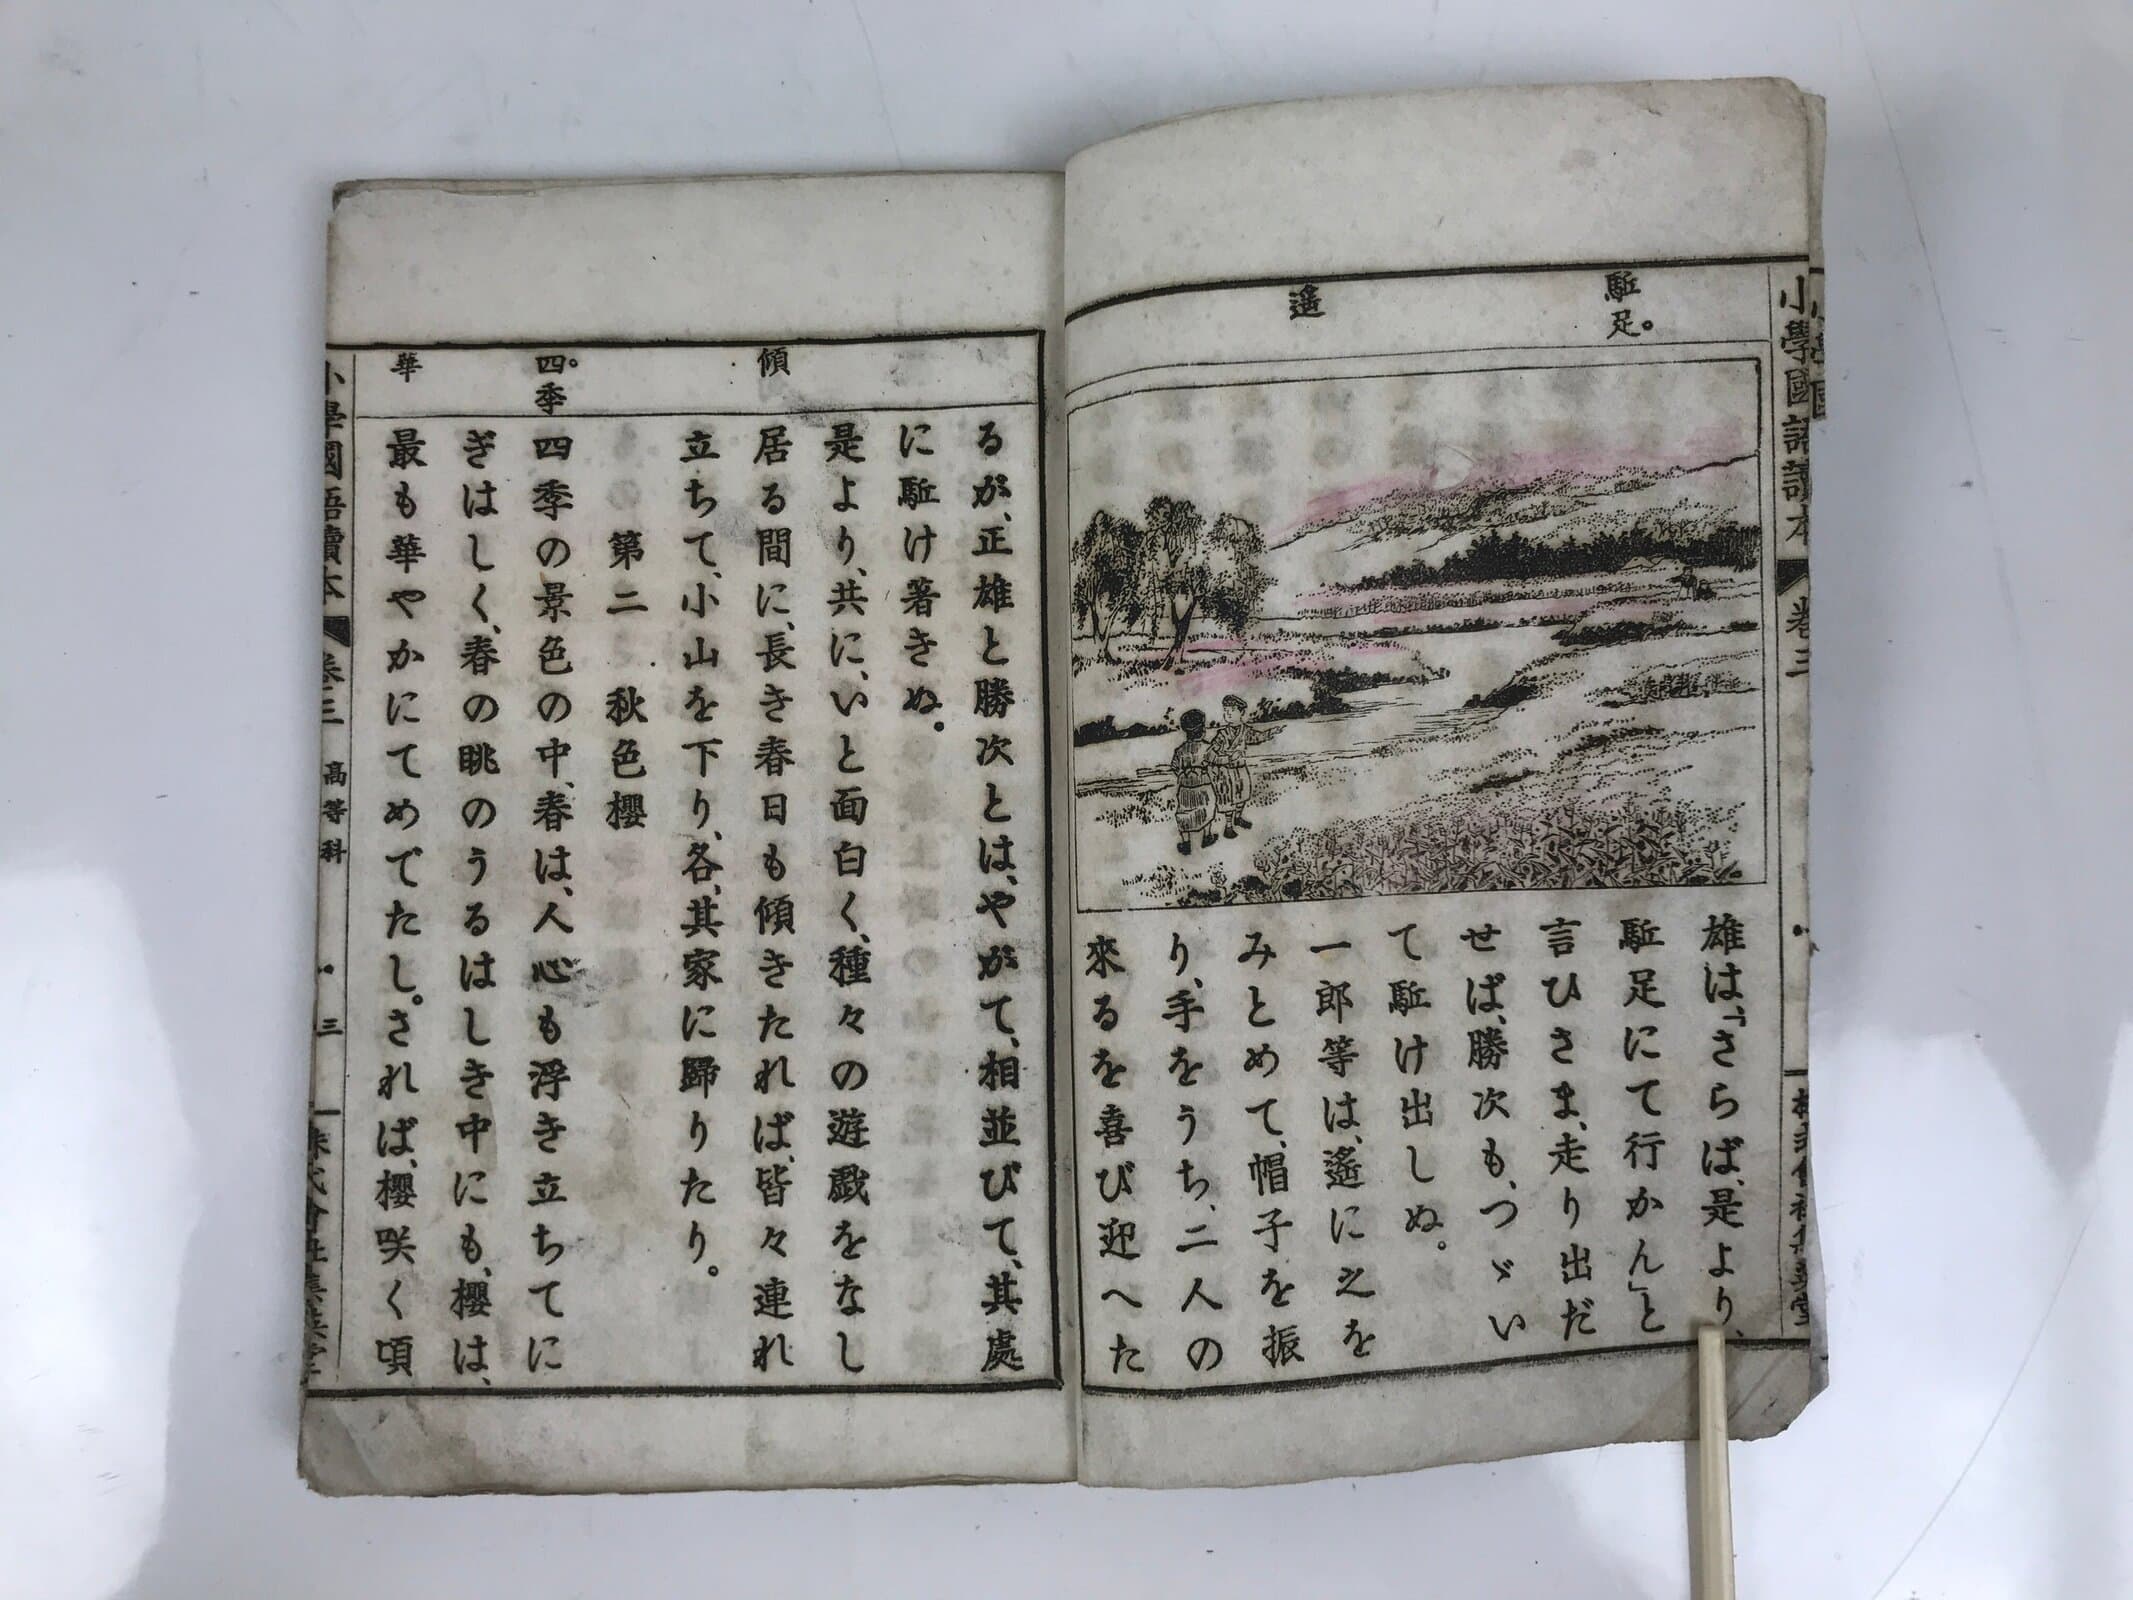 小學國語讀本
卷三
駈足。
遙
雄は、「さらば、是より、
駈足にて行かん」と
言ひさま、走り出だ
せば、勝次も、つゞい
て駈け出しぬ。
一郎等は、遙に之を
みとめて、帽子を振
り、手をうち、二人の
來るを喜び迎へた
傾
四季
華
るが、正雄と勝次とは、やがて、相並びて、其處
に駈け著きぬ。
是より、共に、いと面白く、種々の遊戯をなし
居る間に、長き春日も傾きたれば、皆々連れ
立ちて、小山を下り、各、其家に歸りたり。
第二 秋色櫻
四季の景色の中、春は、人心も浮き立ちてに
ぎはしく、春の眺のうるはしき中にも、櫻は、
最も華やかにてめでたし。されば、櫻咲く頃
小學國語讀本
卷三
高等科
三